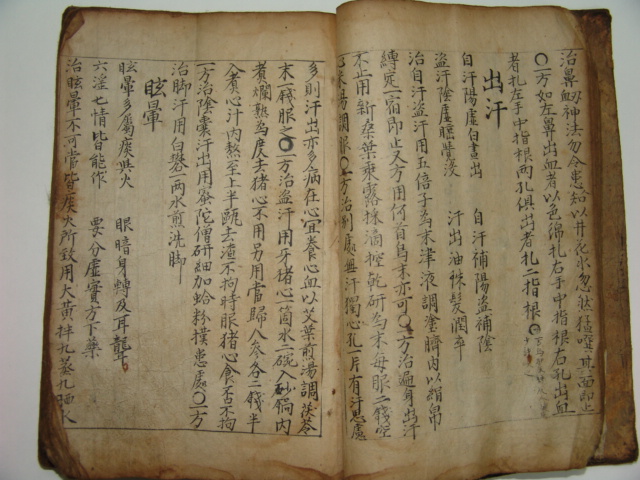 治鼻衂神法勿令患知以井花水忽然𠾱噀其面即止
〇一方如左鼻出血者以色綿扎右手中指根右孔出血
者扎左手中指根兩孔俱出者扎二指根
出汗
自汗陽虛白晝出 自汗補陽盜補陰
盜汗陰虛睡醫 汗出油秼髮潤卒
治自汗盜汗用五倍子為末津液調塗臍内以絹帛
縛定一宿即止又方用何首烏末亦可〇一方治遍身出汗
不止用新桑葉乘露採 控乾研為末每服二錢空
心米湯調服〇一方治别處無汗獨心孔一片有汗思慮
多則汗出亦多病在心宜養心血以艾葉煎湯調茯苓
末一錢服之〇一方治盜汗用牙猪心一箇水二碗入砂鍋内
煮爛熟為度去猪心不用另用當歸人參各二錢半
入煮心汁内熬至上半甌去渣不拘時服猪心食否不拘
一方治陰囊汗出用蜜陀僧研細加蛤粉撲患處〇一方
治脚汗用白礬一兩水煎洗脚
眩暈
眩暈多屬痰與火 眼暗身轉及耳聾
六淫七情皆能作 要分虛實方下藥
治眩暈不可當皆痰火所致用大黃拌九蒸九晒